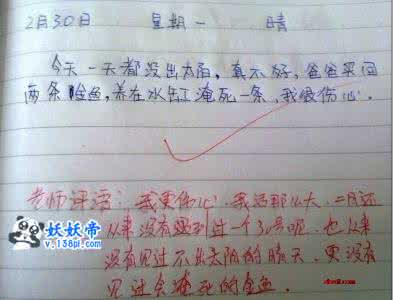 2月30日 星期一 晴
今天一天都没出太阳,真不好,爸爸买回
两条金鱼,养在水缸淹死一条,我很伤心.
老师评语:我更伤心,我活那么大,二月还
从来没有遇到过一个30号呢,也从来
没有见过不出太阳的晴天,更没有
见过会淹死的金鱼
妖妖帝
www.138pi.com